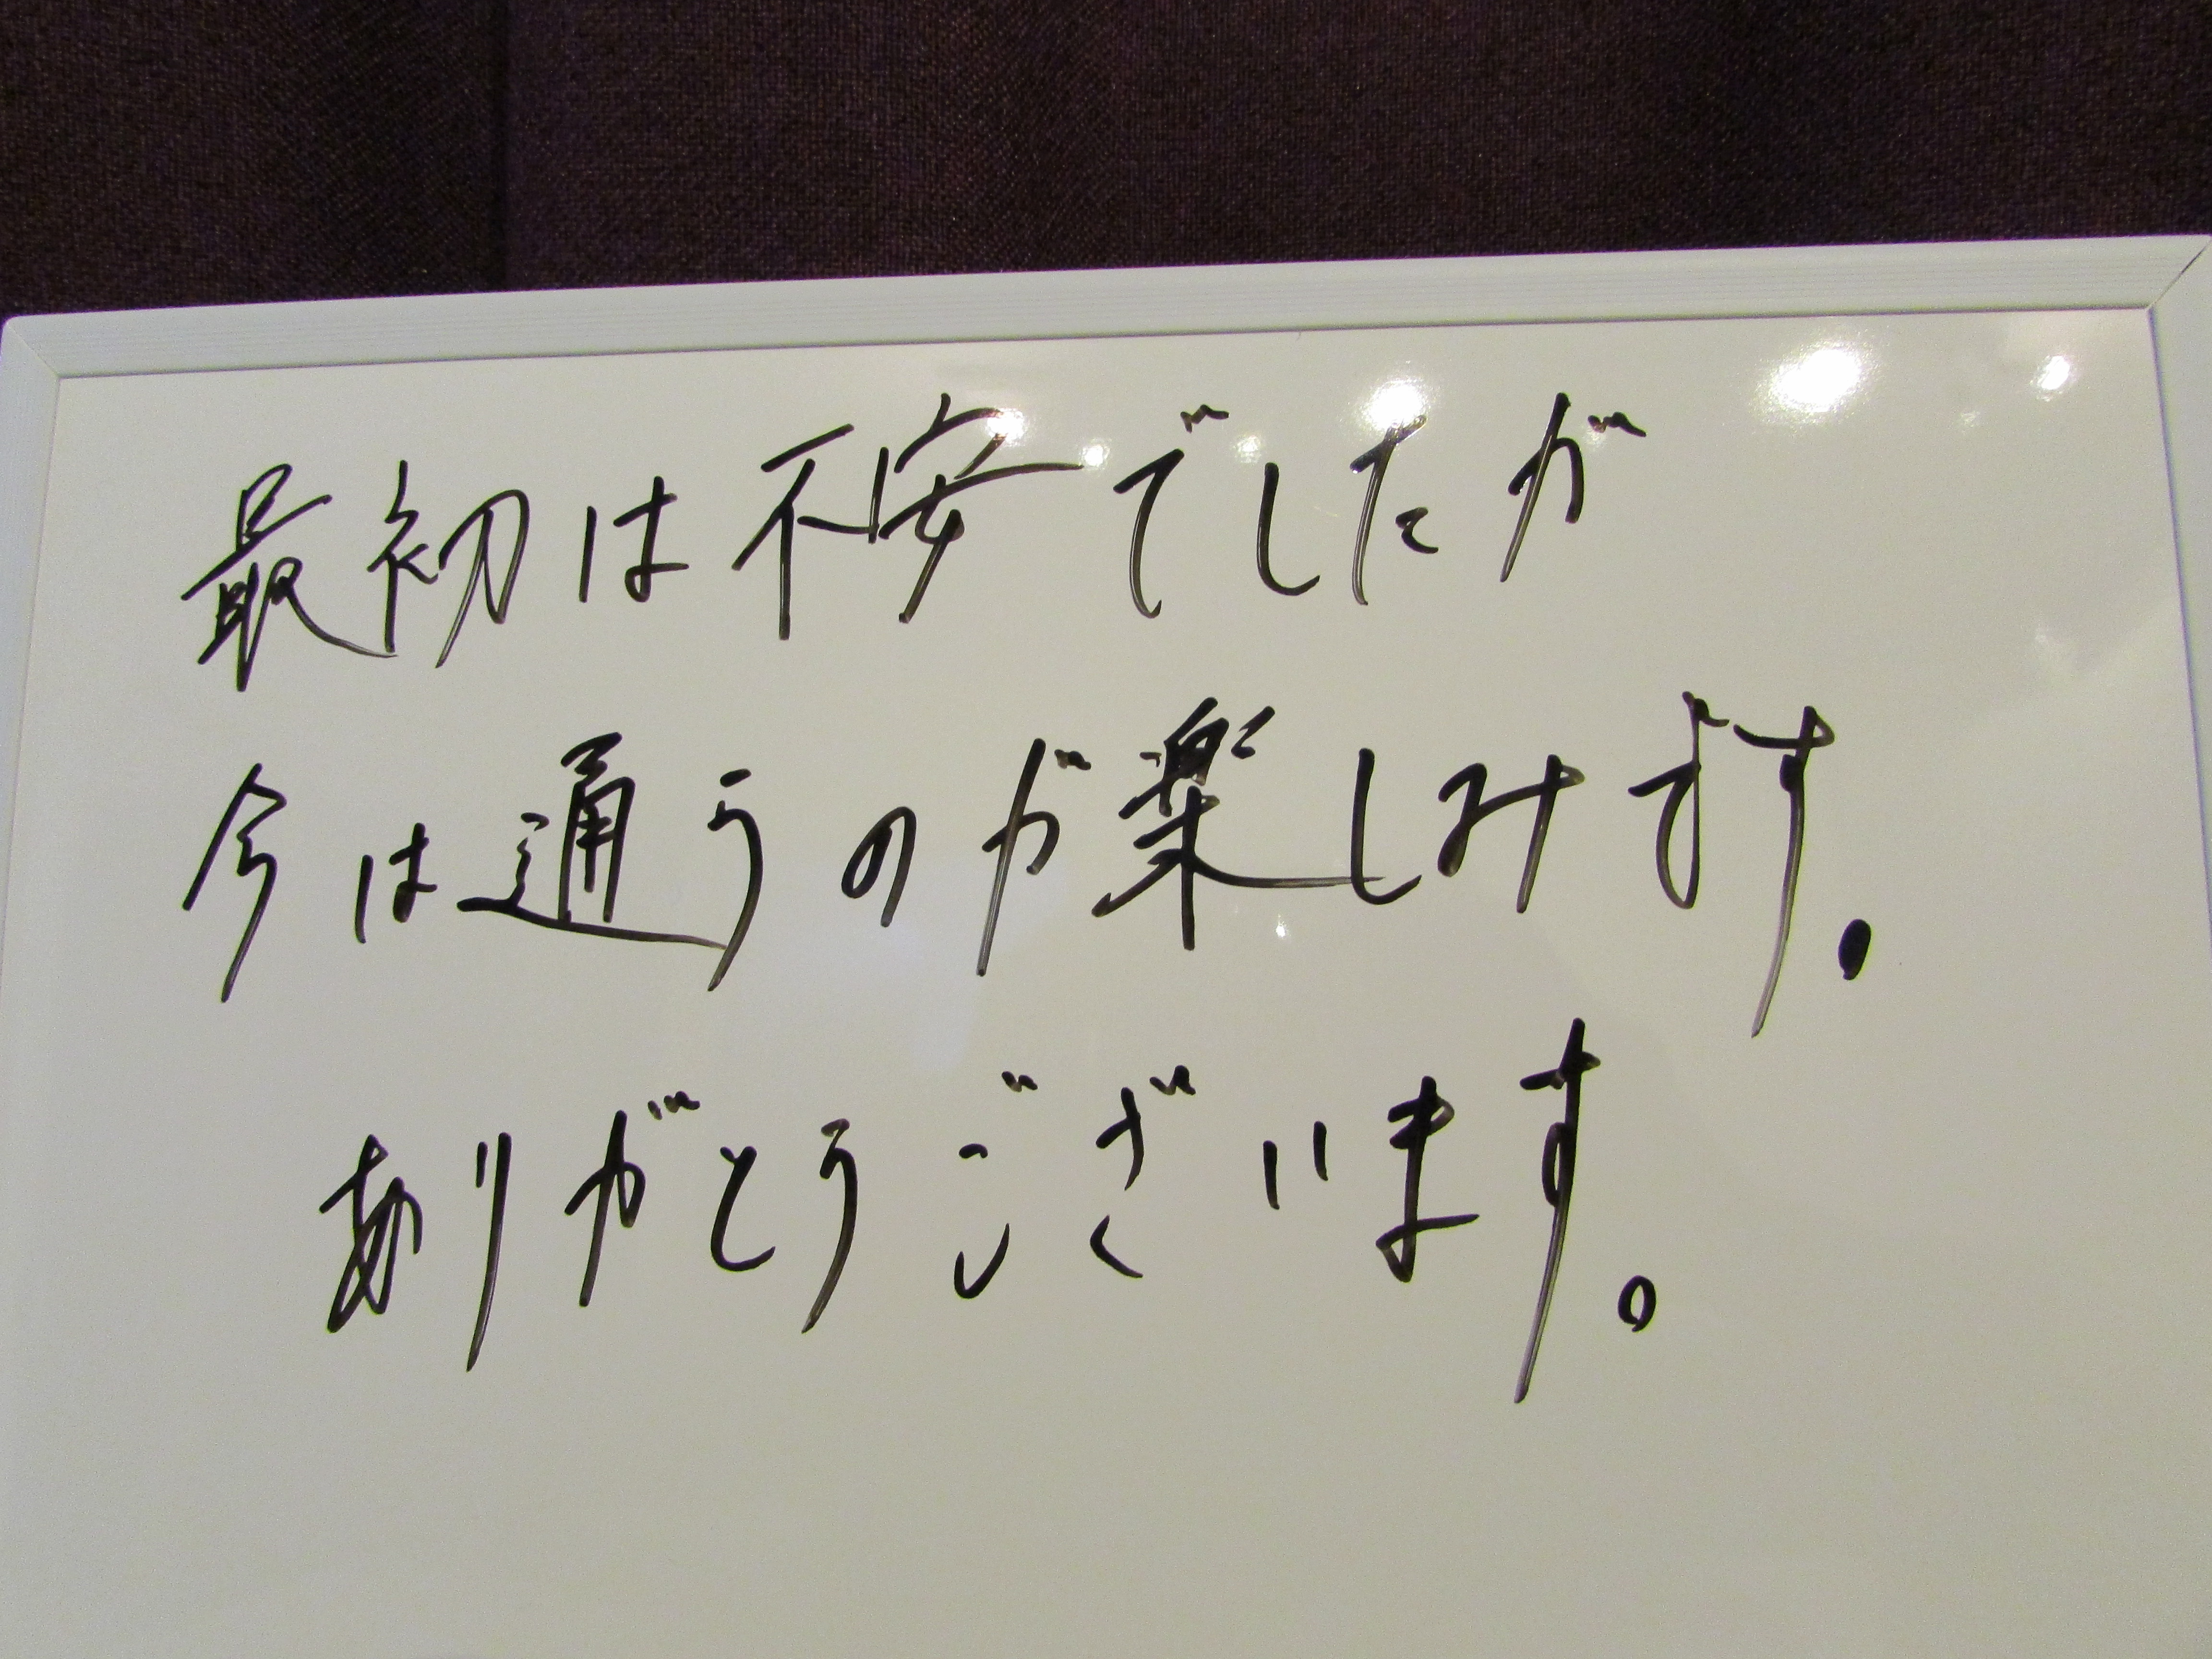 最初は不安でしたが
今は通うのが楽しみです。
ありがとうございます。